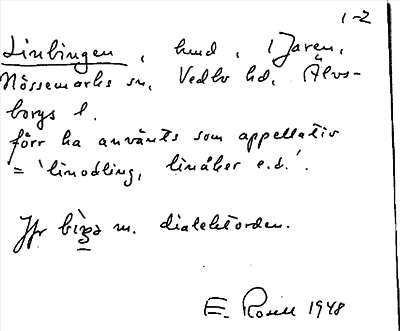 1-2
Linbingen, hmd, i Jaren,
Nössemarks sn, Vedbo hd, Älvs-
borgs l.
förr ha använts som appellativ
= 'linodling, linåker e.d.'.
Jfr binge m. dialektorden.
E. Rosell 1948